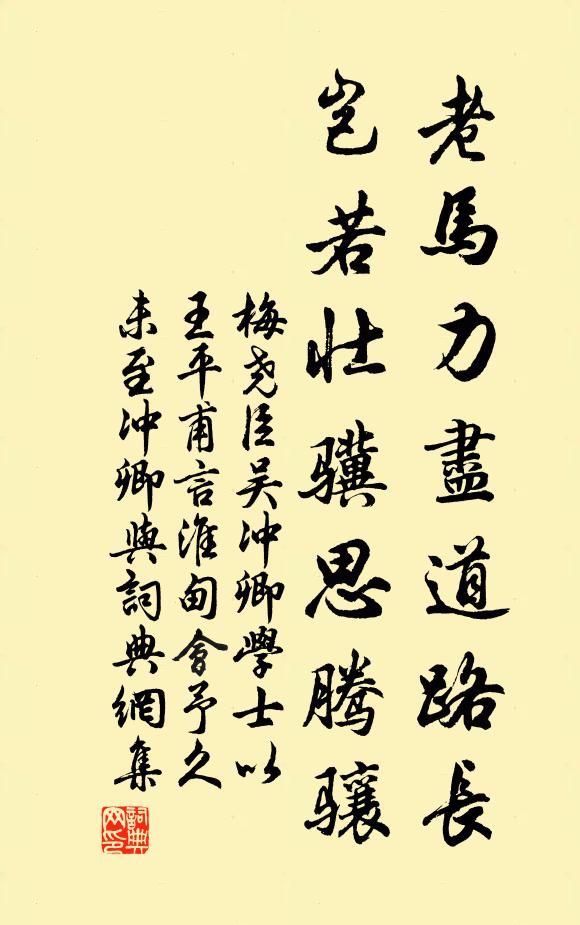 老馬力盡道路長
岂若壮骥思腾骧
梅尧臣吴冲卿學士以
王平甫言淮甸會予久
未至冲卿與詞典網集
詞典網印